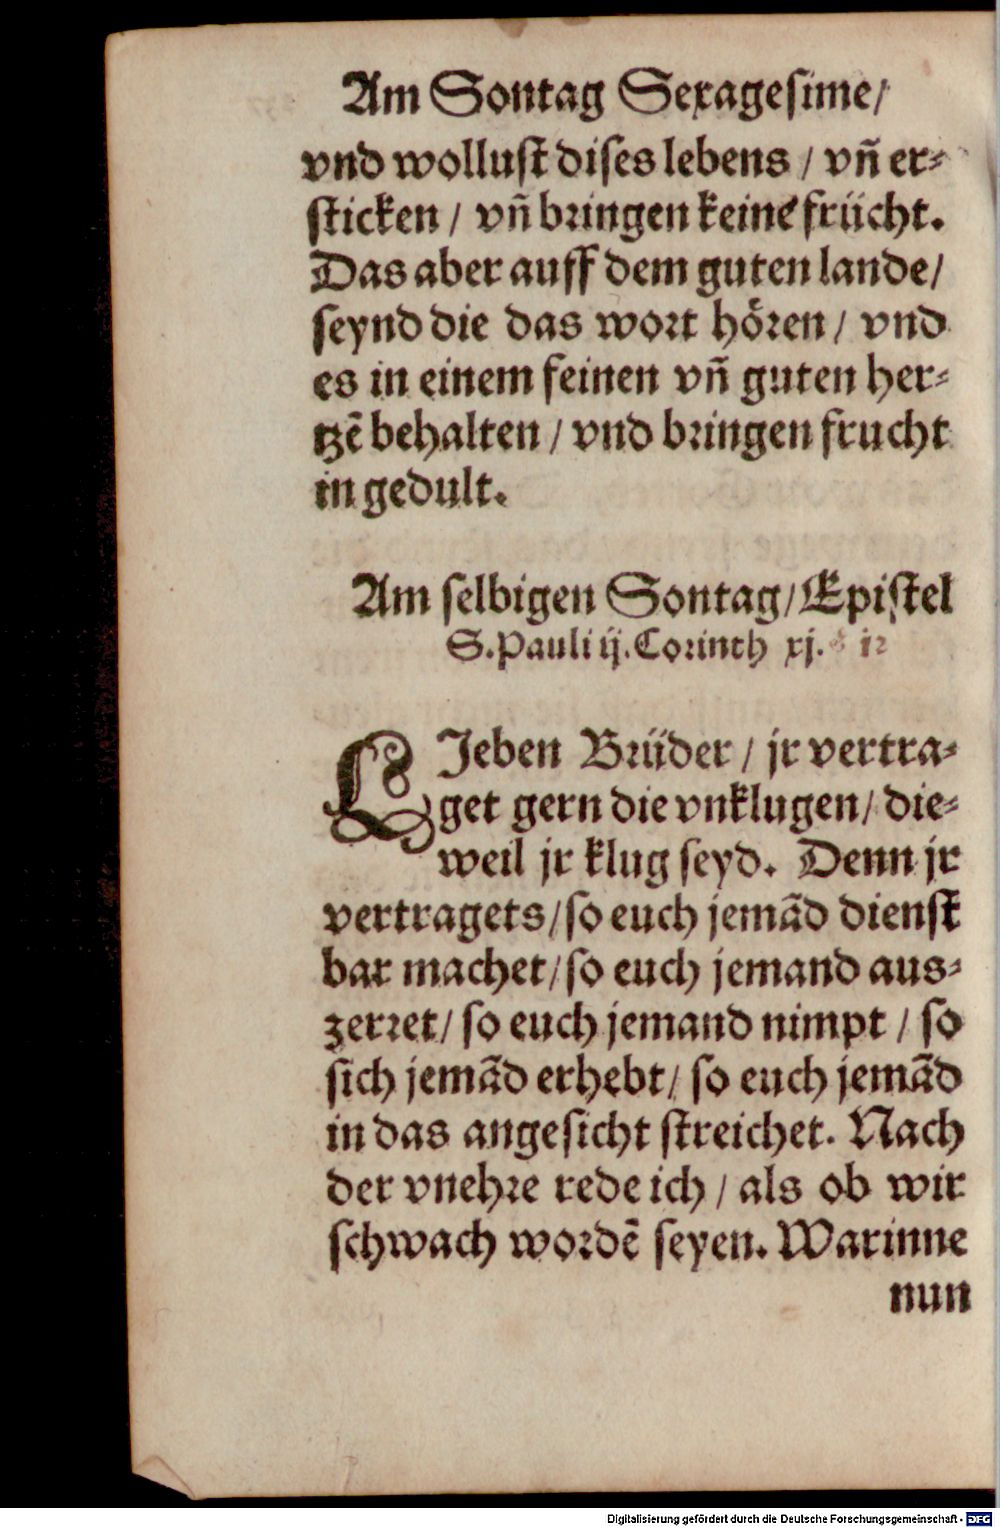 Am Sontag Sexagesime/
vnd wollust dises lebens / vñ er-
sticken / vñ bringen keine frücht.
Das aber auff dem guten lande/
seynd die das wort hören / vnd
es in einem feinen vñ guten her-
tzē behalten / vnd bringen frucht
in gedult.
Am selbigen Sontag/Epistel
S.Pauli ij.Corinth xj.
LJeben Brüder / jr vertra-
get gern die vnklugen/ die-
weil jr klug seyd. Denn jr
vertragets/so euch jemād dienst
bar machet/so euch jemand aus-
zerret/ so euch jemand nimpt / so
sich jemād erhebt/ so euch jemād
in das angesicht streichet. Nach
der vnehre rede ich / als ob wir
schwach wordē seyen. Warinne
nun
Digitalisierung gefördert durch die Deutsche Forschungsgemeinschaft - DFG